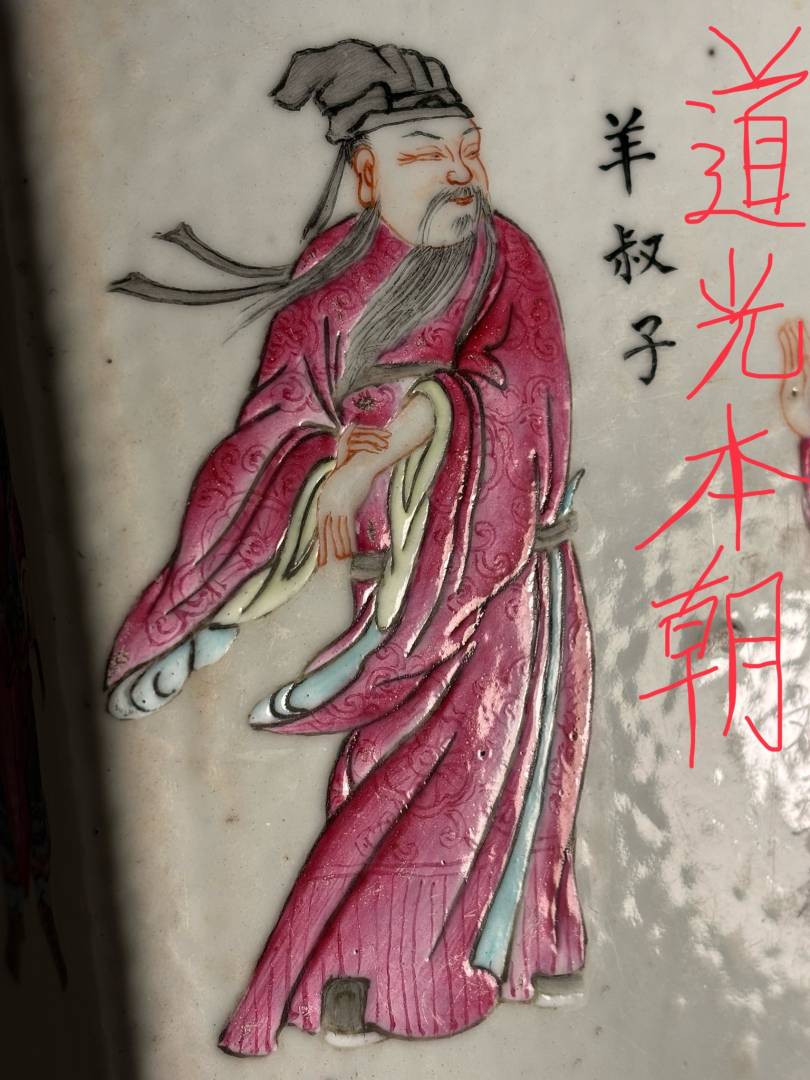 道光本朝
羊叔子